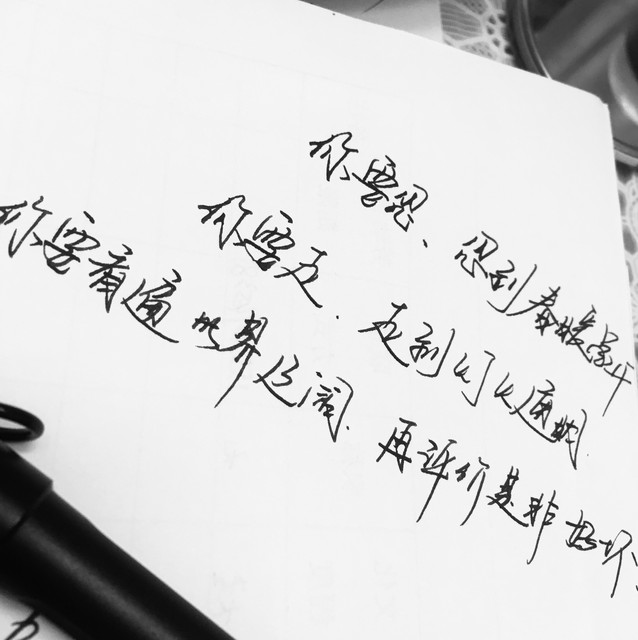 你要忍、忍到春暖花开
你要走、走到灯火通明.
你要看遍世界辽阔.再评价是非好坏.